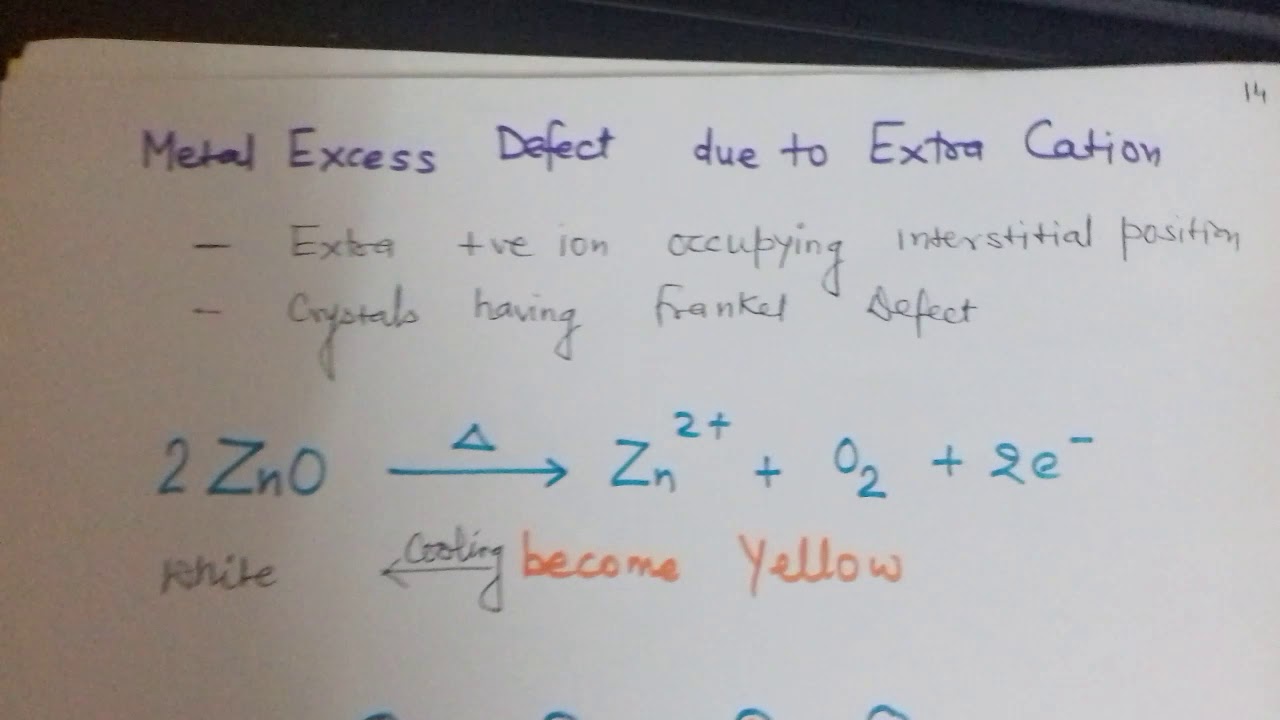 14
Metal Excess Defect due to Extra Cation
- Extra +ve ion occupying interstitial position
- Crystals having Frankel Defect
2 ZnO —Δ→ Zn²⁺ + O₂ + 2e⁻
White ←Cooling— become Yellow